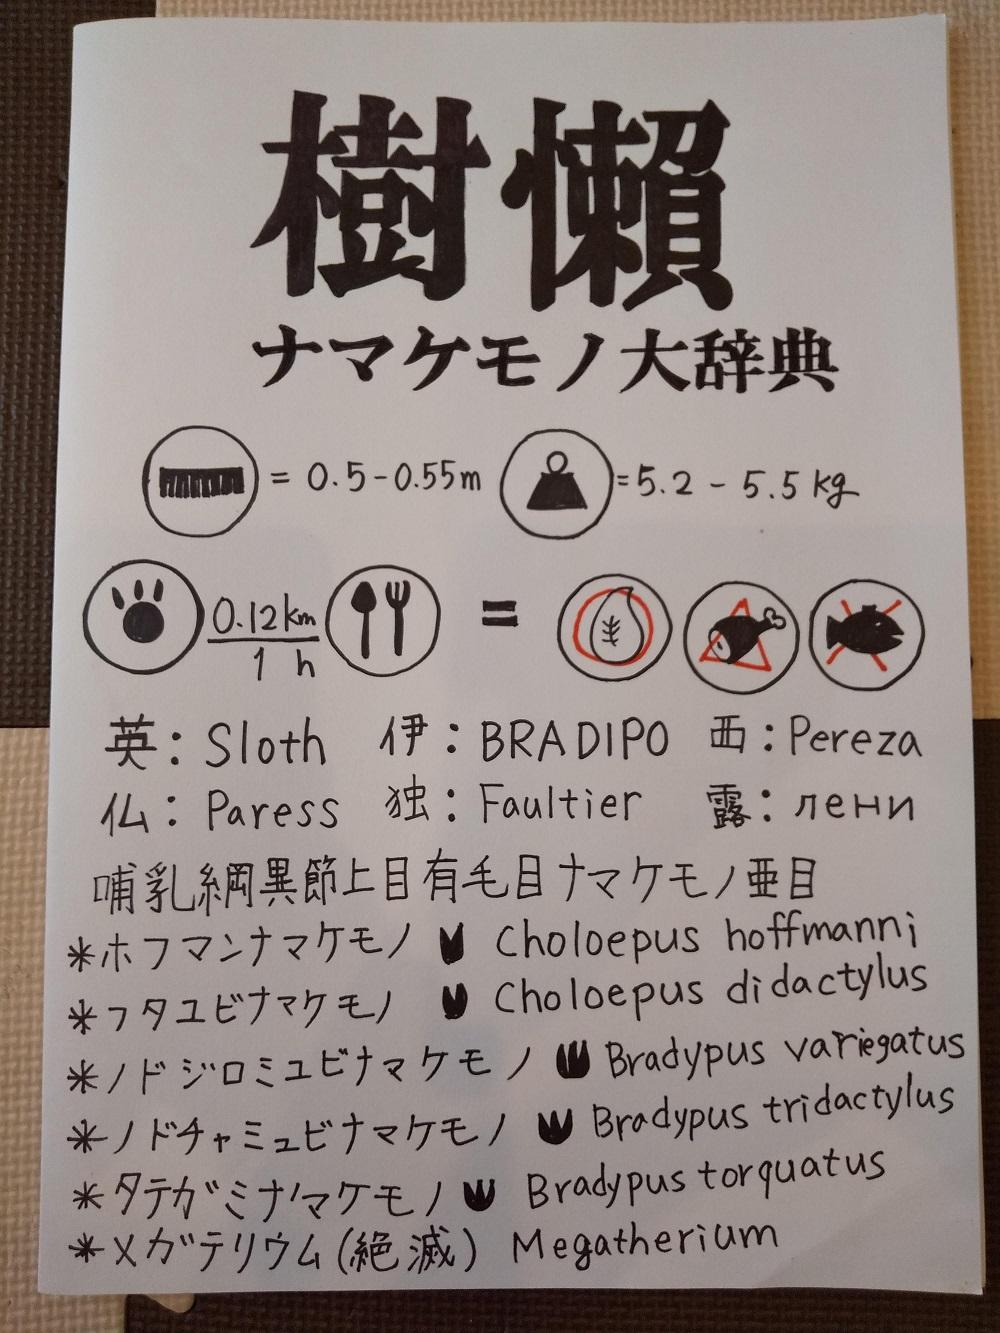 樹懶
ナマケモノ大辞典
= 0.5-0.55m =5.2 - 5.5kg
0.12km
1 h
=
英：Sloth 伊：BRADIPO 西：Pereza
仏：Paress 独：Faultier 露：лени
哺乳綱異節上目有毛目ナマケモノ亜目
*ホフマンナマケモノ Choloepus hoffmanni
*フタユビナマケモノ Choloepus didactylus
*ノドジロミユビナマケモノ Bradypus variegatus
*ノドチャミュビナマケモノ Bradypus tridactylus
*タテガミナマケモノ Bradypus torquatus
*メガテリウム(絶滅) Megatherium